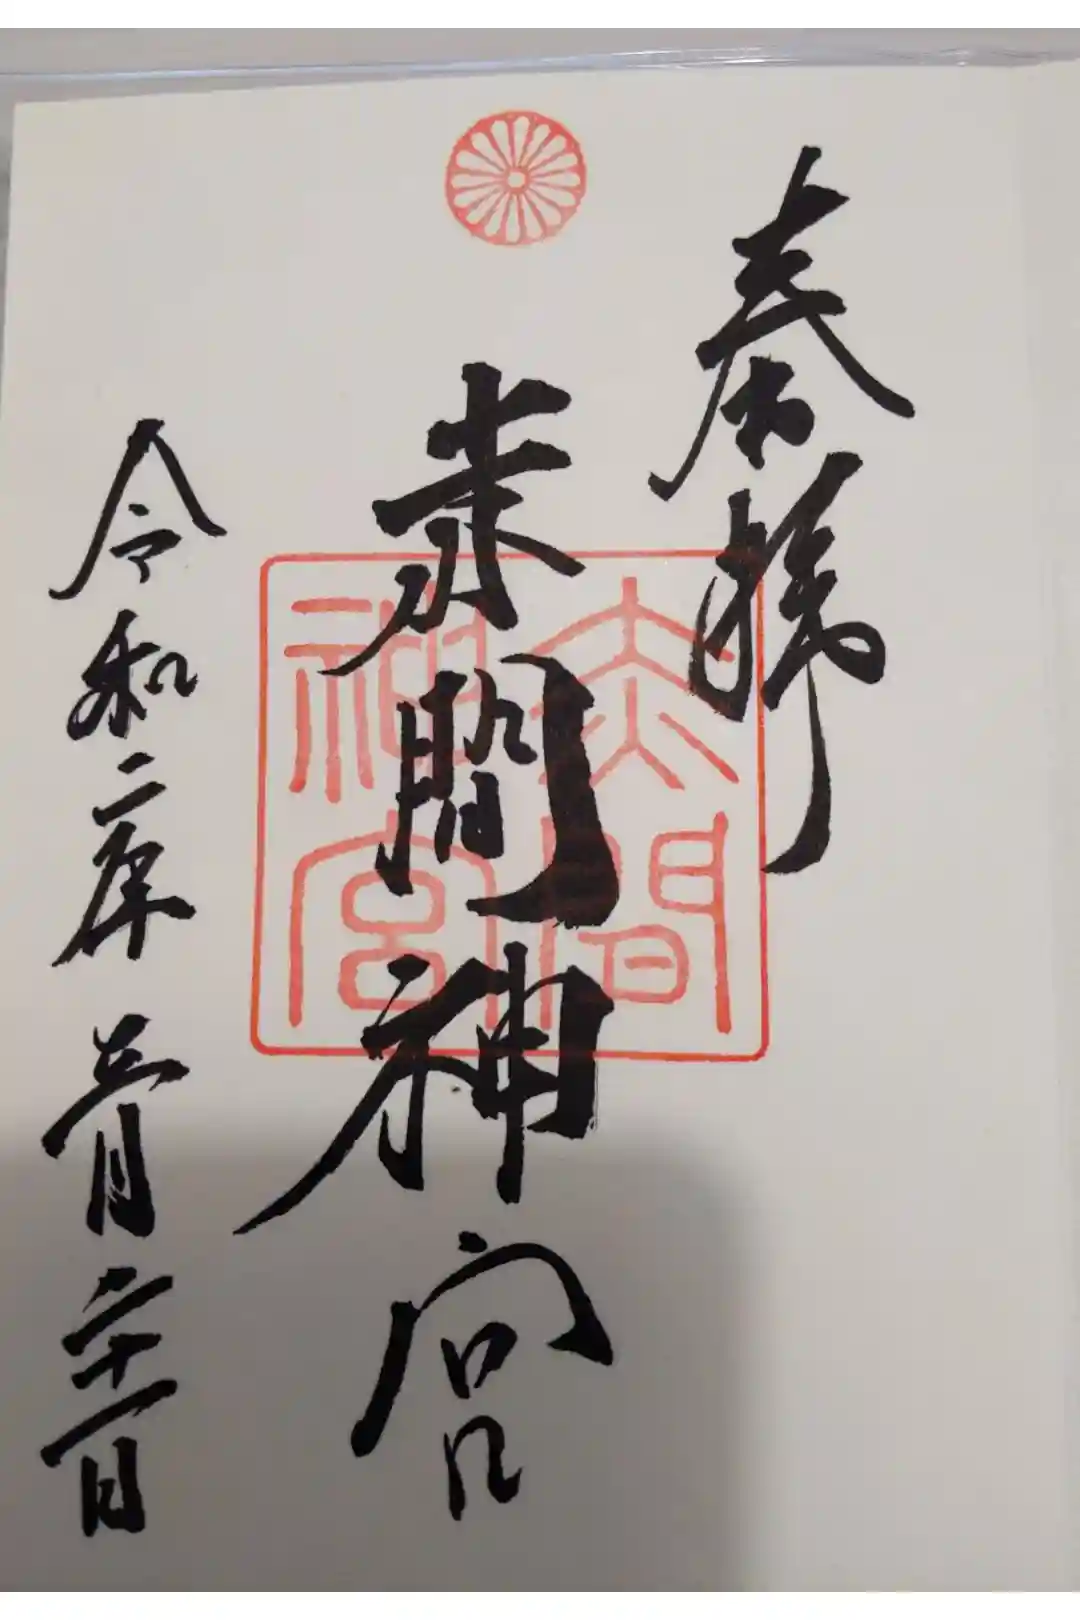 奉拝
赤間神宮
令和二年三月二十一日
赤間
神宮